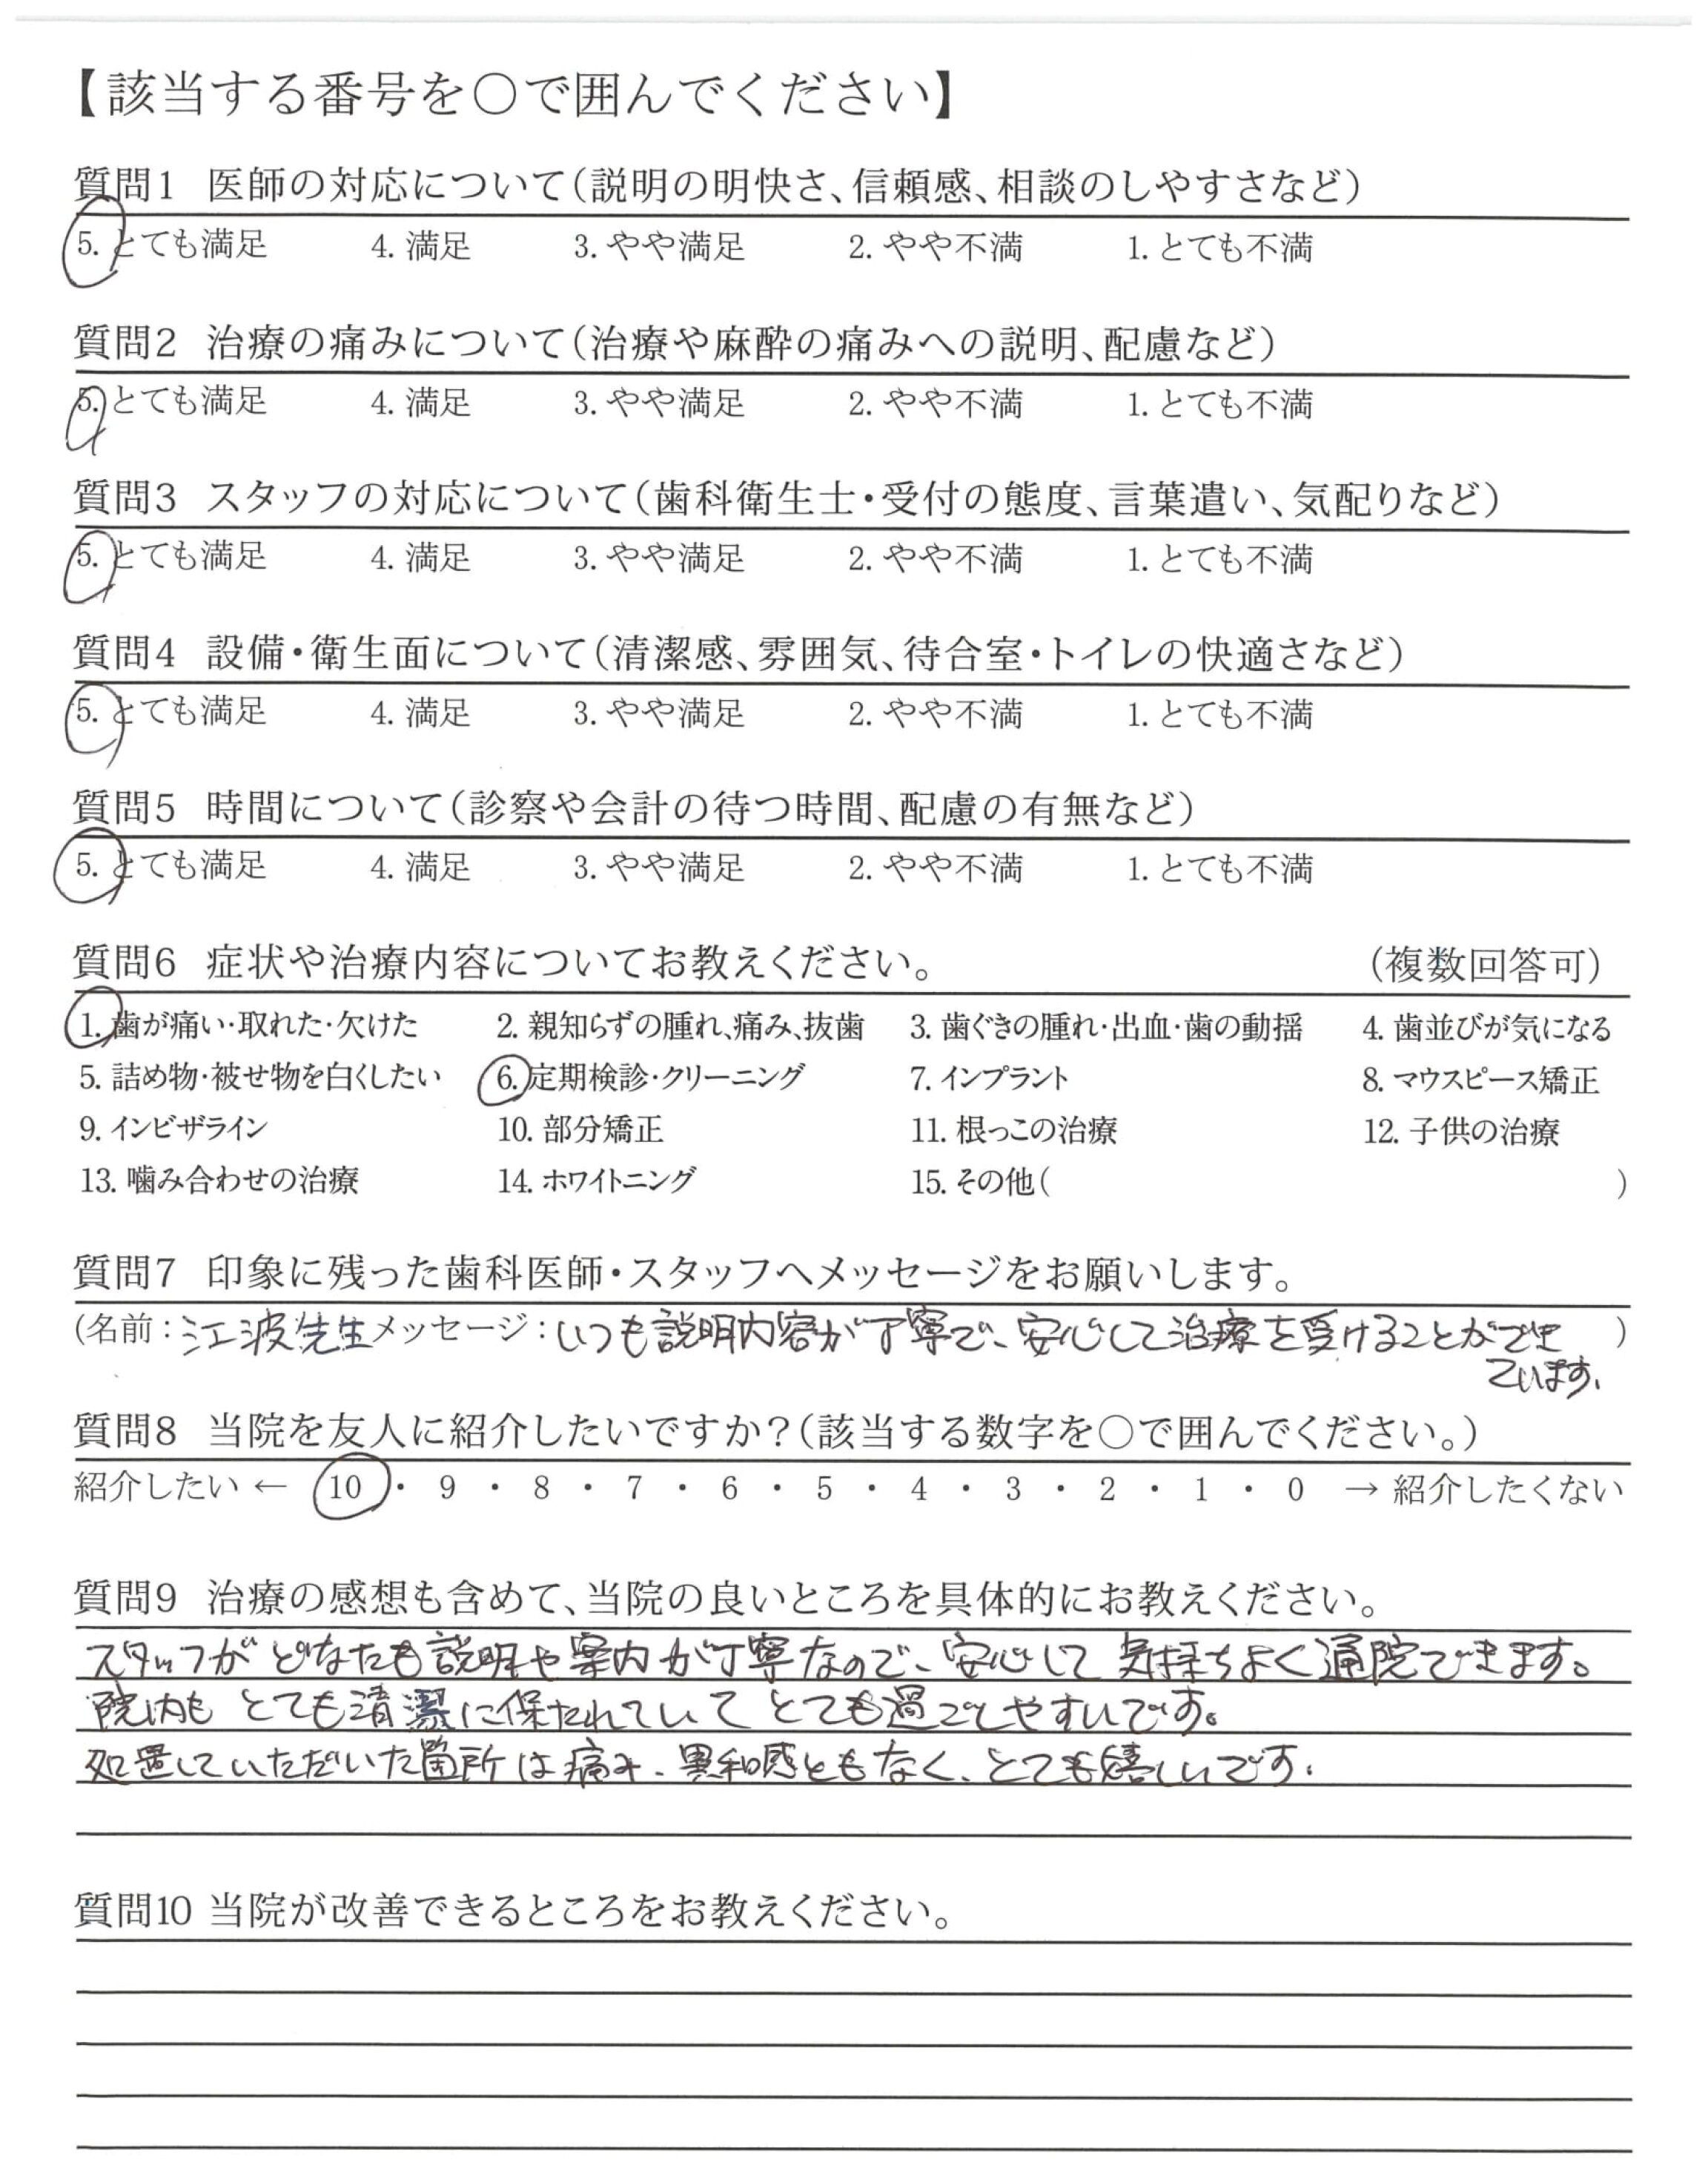 【該当する番号を〇で囲んでください】
質問1 医師の対応について(説明の明快さ、信頼感、相談のしやすさなど)
5. とても満足 4. 満足 3. やや満足 2. やや不満 1. とても不満
質問2 治療の痛みについて(治療や麻酔の痛みへの説明、配慮など)
5. とても満足 4. 満足 3. やや満足 2. やや不満 1. とても不満
質問3 スタッフの対応について(歯科衛生士・受付の態度、言葉遣い、気配りなど)
5. とても満足 4. 満足 3. やや満足 2. やや不満 1. とても不満
質問4 設備・衛生面について(清潔感、雰囲気、待合室・トイレの快適さなど)
5. とても満足 4. 満足 3. やや満足 2. やや不満 1. とても不満
質問5 時間について(診察や会計の待つ時間、配慮の有無など)
5. とても満足 4. 満足 3. やや満足 2. やや不満 1. とても不満
質問6 症状や治療内容についてお教えください。 (複数回答可)
1. 歯が痛い・取れた・欠けた 2. 親知らずの腫れ、痛み、抜歯 3. 歯ぐきの腫れ・出血・歯の動揺 4. 歯並びが気になる
5. 詰め物・被せ物を白くしたい 6. 定期検診・クリーニング 7. インプラント 8. マウスピース矯正
9. インビザライン 10. 部分矯正 11. 根っこの治療 12. 子供の治療
13. 噛み合わせの治療 14. ホワイトニング 15. その他( )
質問7 印象に残った歯科医師・スタッフへメッセージをお願いします。
(名前：江波先生 メッセージ：いつも説明内容が丁寧で、安心して治療を受けることができ )
ています。
質問8 当院を友人に紹介したいですか？(該当する数字を〇で囲んでください。)
紹介したい ← 10 ・ 9 ・ 8 ・ 7 ・ 6 ・ 5 ・ 4 ・ 3 ・ 2 ・ 1 ・ 0 → 紹介したくない
質問9 治療の感想も含めて、当院の良いところを具体的にお教えください。
スタッフがどなたも説明や案内が丁寧なので、安心して気持ちよく通院できます。
院内もとても清潔に保たれていてとても過ごしやすいです。
処置していただいた箇所は痛み、異和感ともなく、とても嬉しいです。
質問10 当院が改善できるところをお教えください。